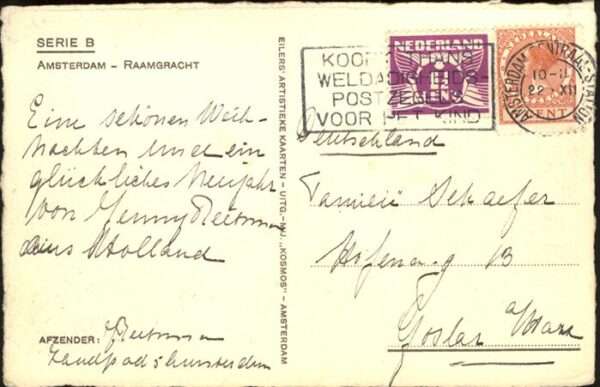 SERIE B
AMSTERDAM – RAAMGRACHT
Eine schönen Weih-
nachten und ein
glückliches Neujahr
von Jenny
aus Holland
AFZENDER:
EILERS' ARTISTIEKE KAARTEN – UITG.-MIJ. „KOSMOS" – AMSTERDAM
NEDERLAND
KOOPT THANS
WELDADIGHEIDS-
POSTZEGELS
VOOR HET KIND
AMSTERDAM CENTRAAL STATION
10-11
22 XII
CENT
Deutschland
Familie Schaefer
13
Goslar a/Harz